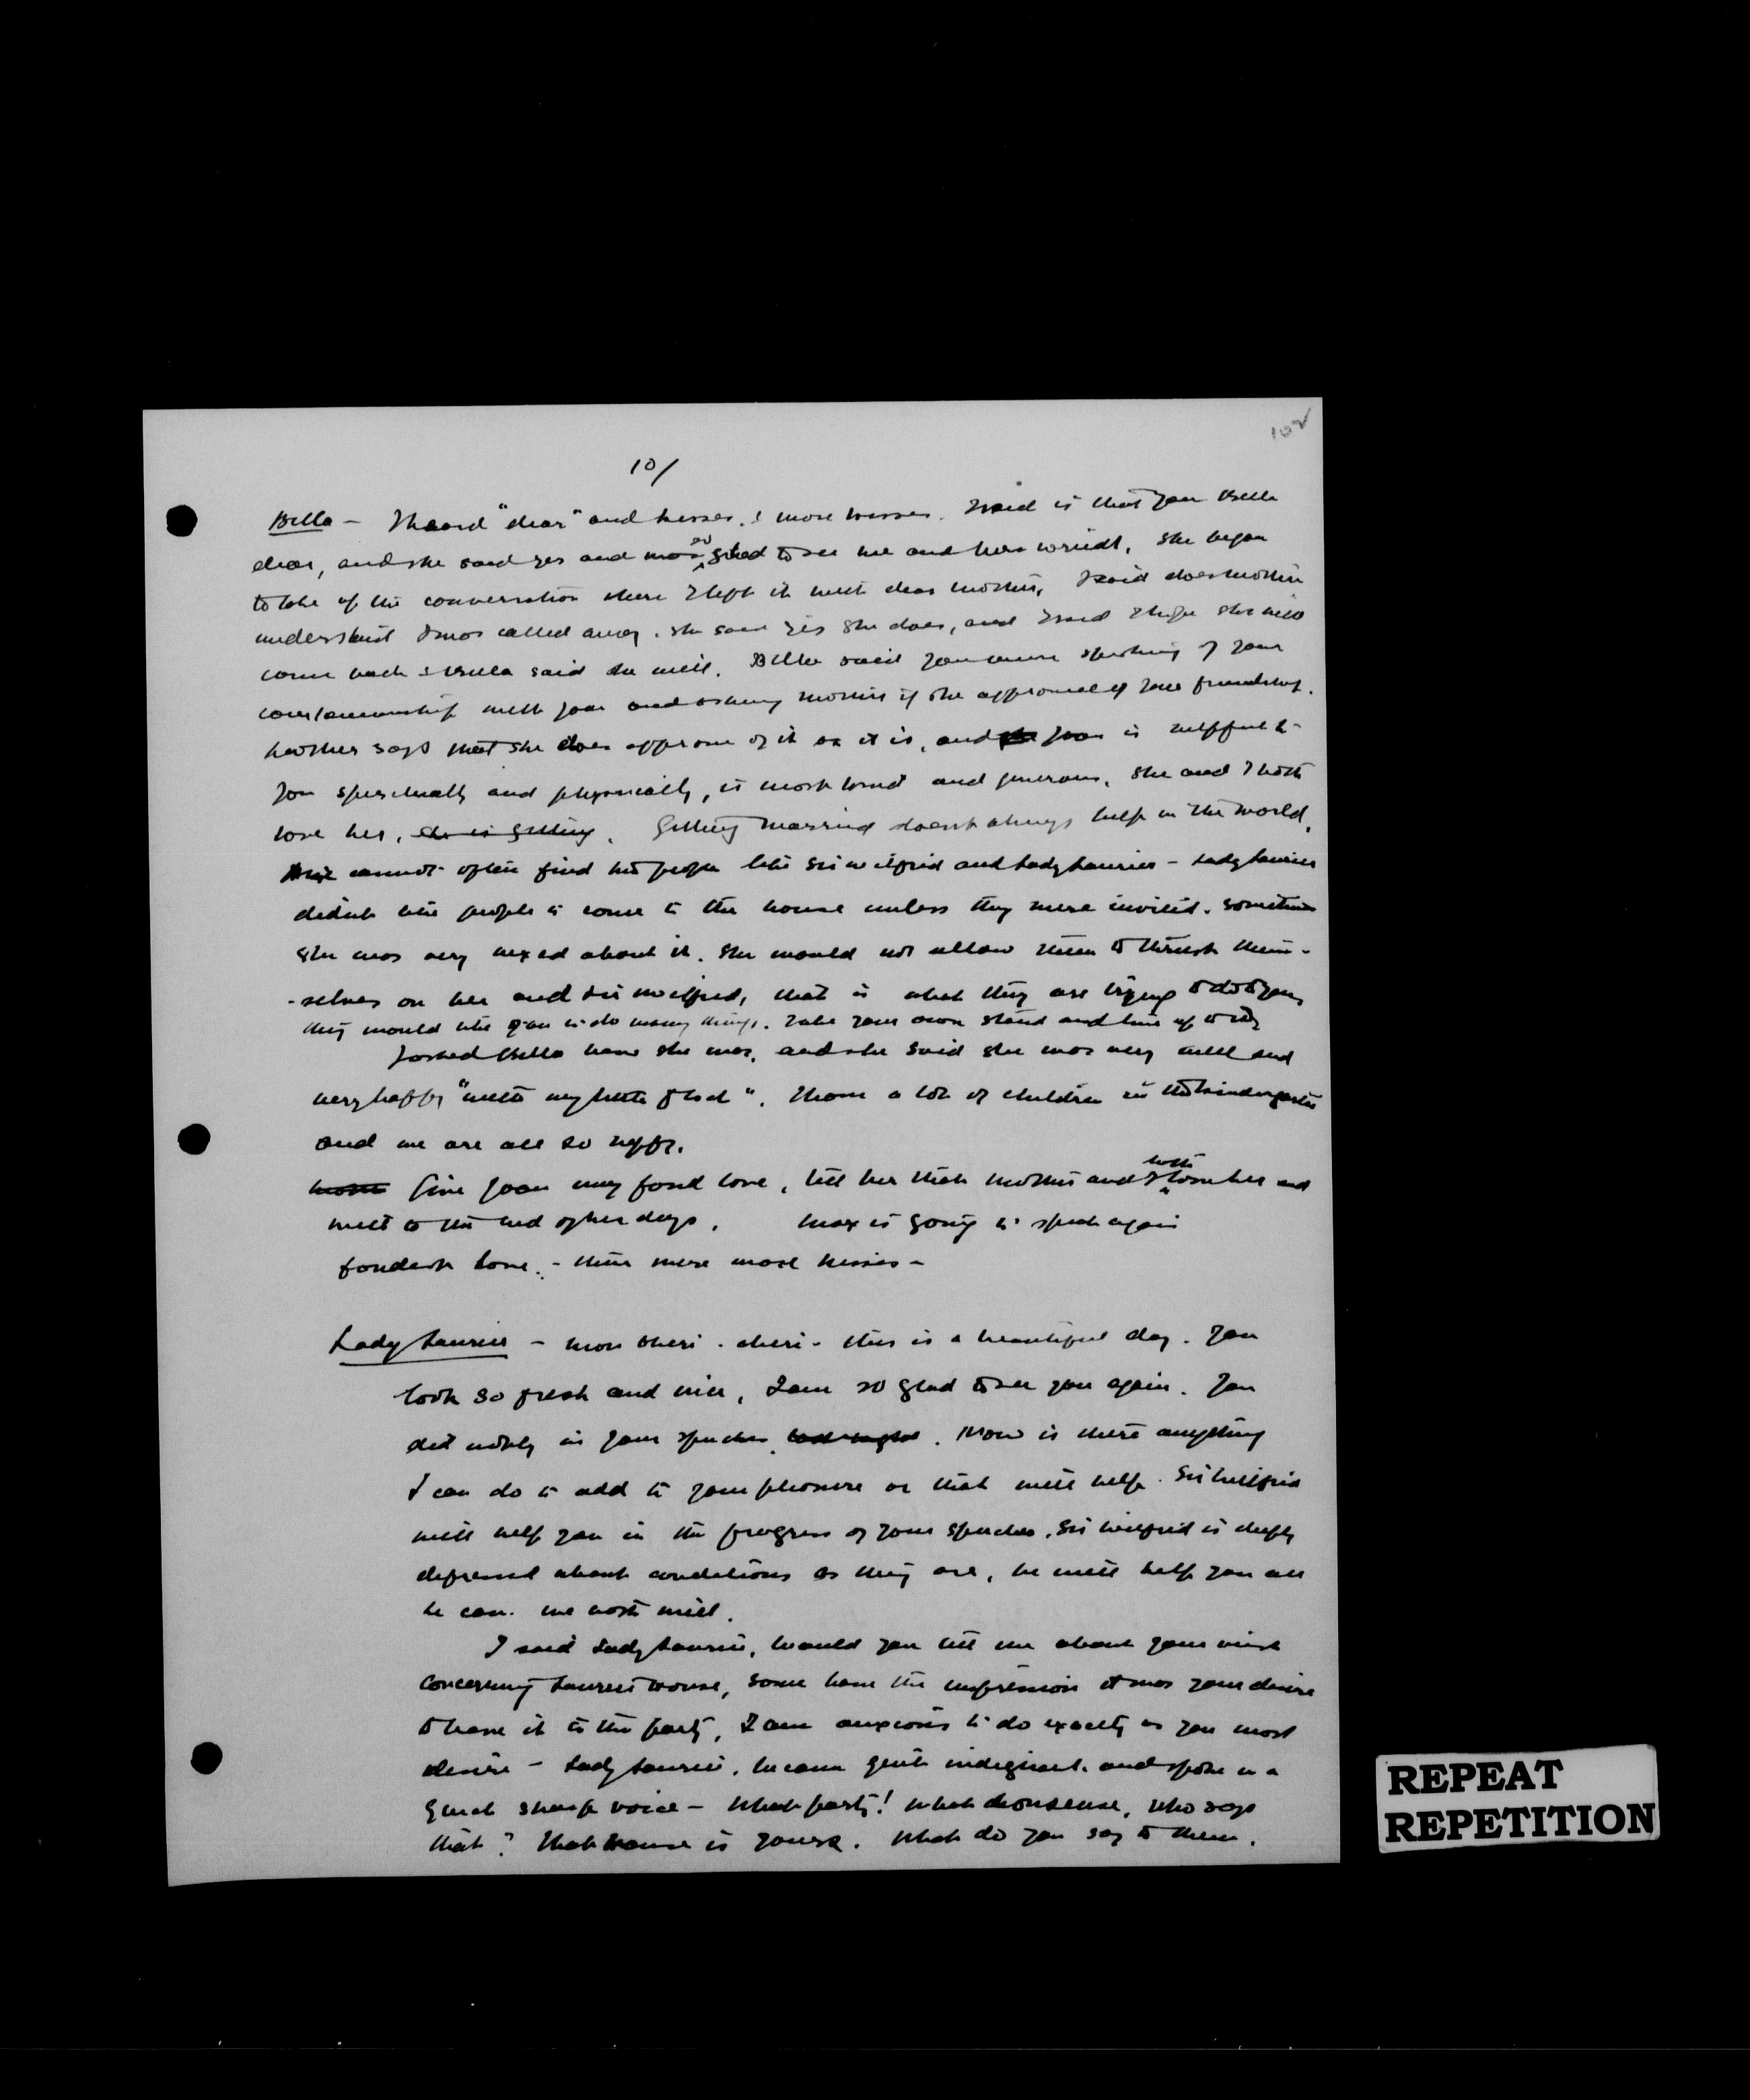 102
10/
Bella - I heard "dear" and kisses. & more kisses. I said is that you Bella
dear, and she said yes and was so glad to see me and here we
to take up the conversation where I left it with dear mother, I said does mother
understand I was called away. She said yes she does, and I said I hope she will
come back & Bella said she will. Bella said you were speaking of your
companionship with Joan and asking mother if she approved of your friendship.
Mother says that she does approve of it as it is, and Joan is helpful to
you spiritually and physically, is most kind and generous. She and I both
love her. she is getting. Getting married doesn't always help in the world,
cannot often find two people like Sir Wilfrid and Lady Laurier - Lady Laurier
didn't like people to come to the house unless they were invited. Sometimes
she was very vexed about it. She would not allow them to thrust them-
-selves on her and Sir Wilfrid, that is what they are trying to do to you,
they would like you to do many things. Take your own stand and live up to it
I asked Bella how she was, and she said she was very well and
very happy "with my little flock". I have a lot of children in the kindergarten
and we are all so happy.
Give Joan my fond love, tell her that mother and I both love her and
will to the end of her days. Max is going to speak again
fondest love. - there were more kisses -
Lady Laurier - mon cheri - cheri - this is a beautiful day. You
look so fresh and nice, I am so glad to see you again. You
did nobly in your speeches last night. Now is there anything
I can do to add to your pleasure or that will help. Sir Wilfrid
will help you in the progress of your speeches. Sir Wilfrid is deeply
depressed about conditions as they are, he will help you all
he can. We both will.
I said Lady Laurier, would you tell me about your wish
concerning Laurier House, some have the impression it was your desire
to leave it to the party, I am anxious to do exactly as you most
desire - Lady Laurier, became quite indignant. and spoke in a
quick sharp voice - What party! What nonsense, who says
that? That house is yours. What do you say to them.
REPEAT
REPETITION